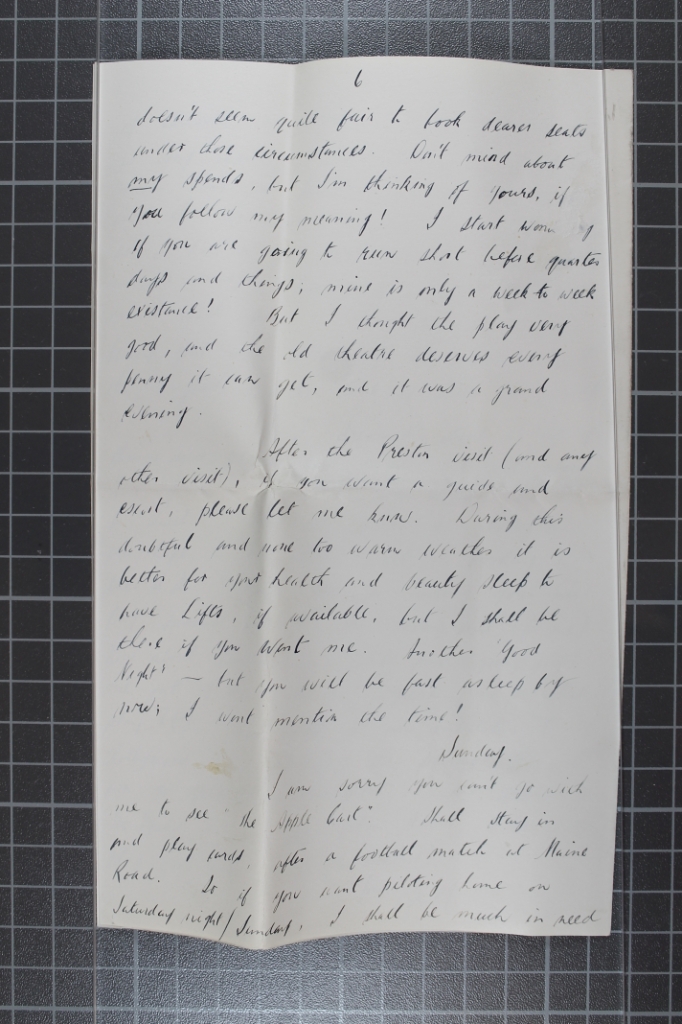 6
doesn't seem quite fair to book dearer seats
under those circumstances. Don't mind about
my spends, but I'm thinking of yours, if
you follow my meaning! I start worrying
if you are going to run short before quarter
days and things; mine is only a week to week
existance! But I thought the play very
good, and the old theatre deserves every
penny it can get, and it was a grand
evening.
After the Preston visit (and any
other visit), if you want a guide and
escort, please let me know. During this
doubtful and none too warm weather it is
better for your health and beauty sleep to
have Lifts, if available, but I shall be
there if you want me. Another 'Good
Night' — but you will be fast asleep by
now; I wont mention the time!
Sunday.
I am sorry you can't go with
me to see "the Apple Cart". Shall stay in
and play cards, after a football match at Maine
Road. So if you want piloting home on
Saturday night/Sunday, I shall be much in need